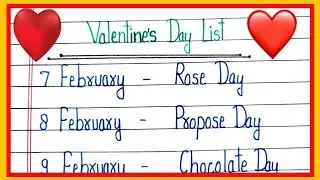 Valentine's Day List
7 February - Rose Day
8 February - Propose Day
9 February - Chocolate Day